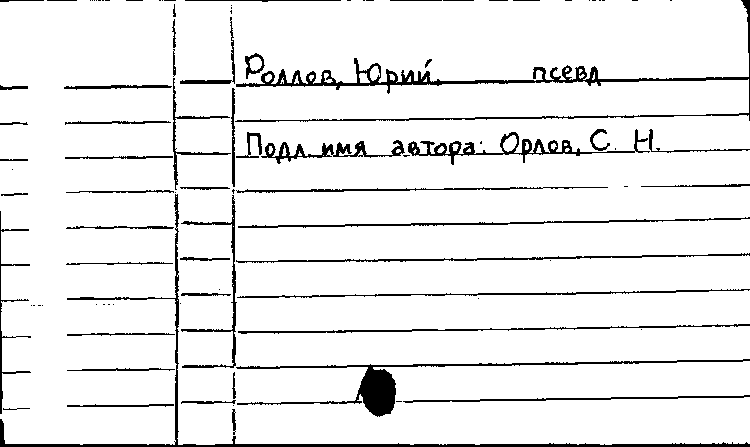 Роллов, Юрий. псевд
Подл. имя автора: Орлов, С. Н.